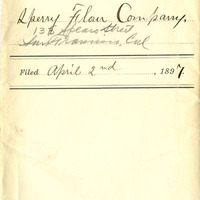 Sperry Flour Company.
134 Spear Street
San Francisco, Cal
Filed April 2nd, 1897.